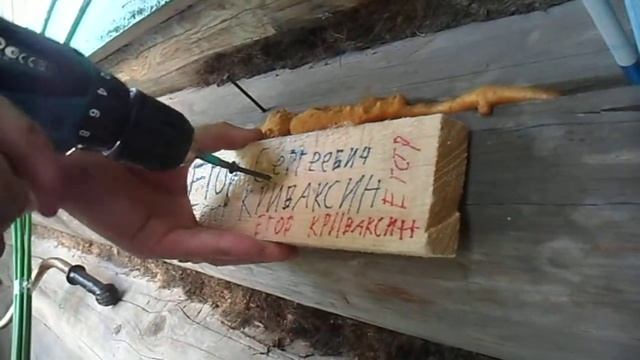 ЕГОР СЕРГЕЕВИЧ
КРИВАКСИН
ЕГОР КРИВАКСИН
Егор
4
6
8